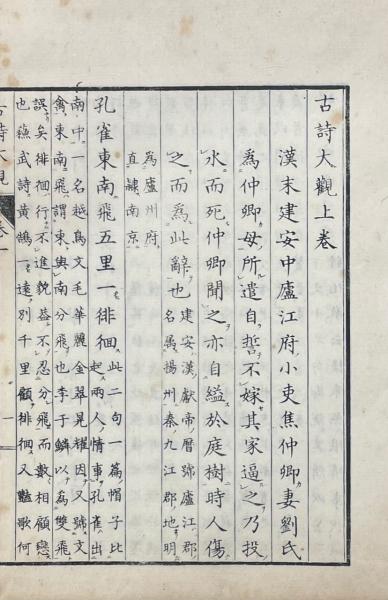 古詩大觀上卷
漢末建安中廬江府小吏焦仲卿妻劉氏
爲仲卿母所遣自誓不嫁其家逼之乃投
水而死仲卿聞之亦自縊於庭樹時人傷
之而爲此辭也建安漢獻帝暦號廬江郡
名禹揚州秦九江郡地明
爲廬州府
直隷南京
孔雀東南飛五里一徘徊此二句一篇帽子比
起兩人情事孔雀出
南中一名越鳥文毛華麗金翠晃耀因又號文
禽東南飛謂東與南分飛也李于鱗以爲雙飛
誤矣徘徊行不進貌益不忍分飛而數相顧戀
也蘇武詩黃鵠一遠別千里顧徘徊又艷歌何
古詩大觀 卷一
一